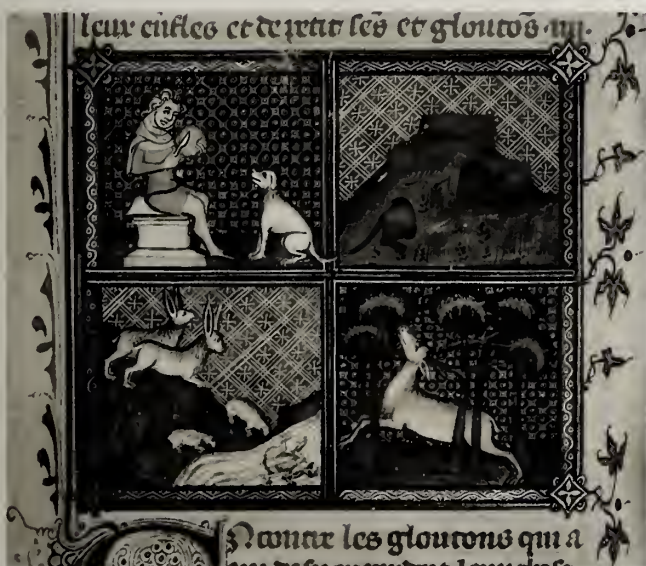 leur enfles et de petit sẽs et gloutõs .iiii.
Ncontre les gloutons qui a